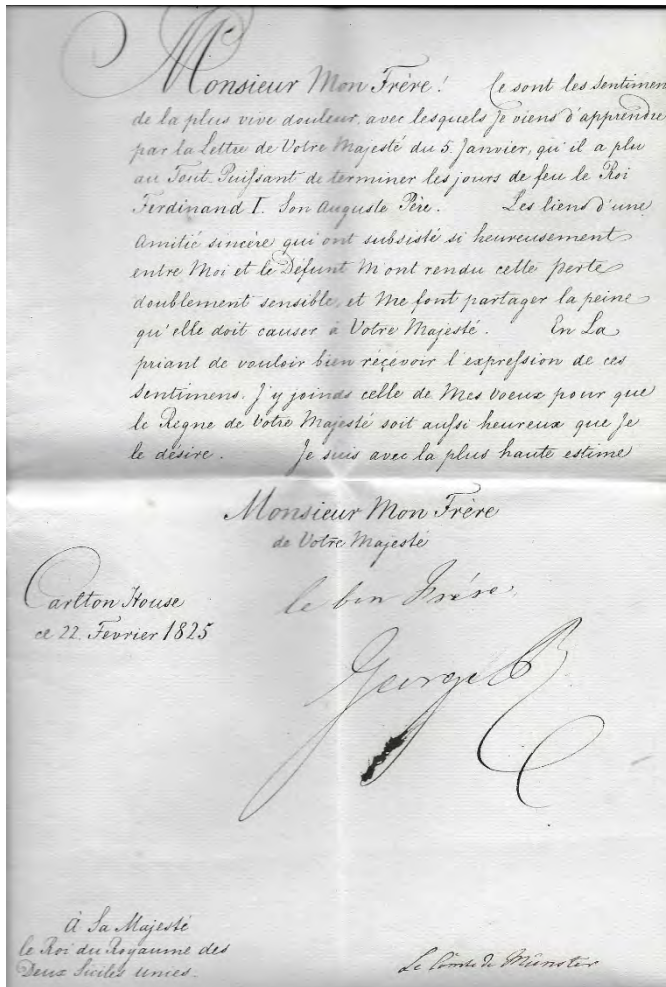 Monsieur Mon Frère! Ce sont les Sentimen
de la plus vive douleur, avec lesquels Je viens d'apprendre
par la Lettre de Votre Majesté du 5. Janvier, qu'il a plu
au Tout-Puissant de terminer les jours de feu le Roi
Ferdinand I. Son Auguste Père. Les liens d'une
Amitié sincère qui ont subsisté si heureusement
entre Moi et le Défunt M'ont rendu cette perte
doublement sensible, et Me font partager la peine
qu'elle doit causer à Votre Majesté. En La
priant de vouloir bien reçevoir l'expression de ces
Sentimens. J'y joinds celle de Mes Voeux pour que
le Règne de Votre Majesté soit aussi heureux que Je
le désire. Je suis avec la plus haute estime
Monsieur Mon Frère
de Votre Majesté
le bon Frère,
Carlton House
ce 22. Fevrier 1825
George R
À Sa Majesté
le Roi du Royaume des
Deux Siciles unies.
Le Comte de Münster